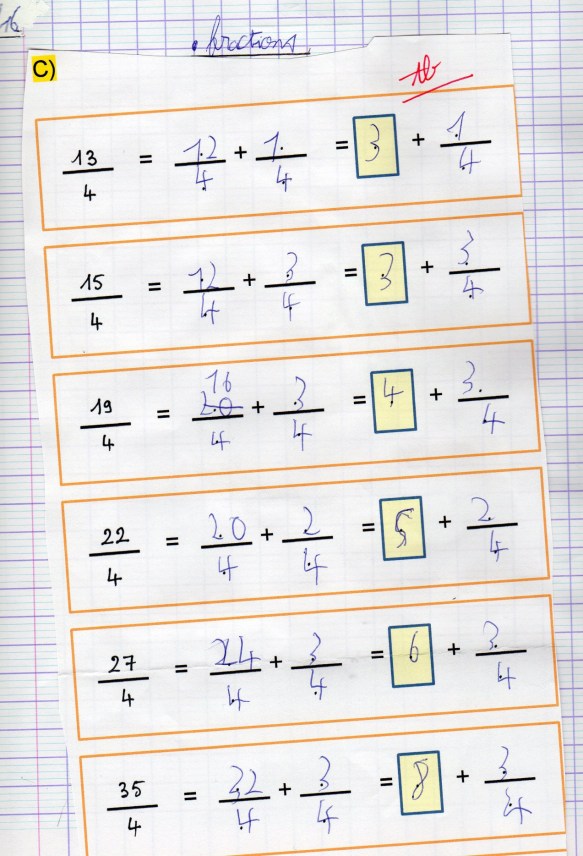 16
fractions
C)
tb
13/4 = 12/4 + 1/4 = 3 + 1/4
15/4 = 12/4 + 3/4 = 3 + 3/4
19/4 = 16 20/4 + 3/4 = 4 + 3/4
22/4 = 20/4 + 2/4 = 5 + 2/4
27/4 = 24/4 + 3/4 = 6 + 3/4
35/4 = 32/4 + 3/4 = 8 + 3/4